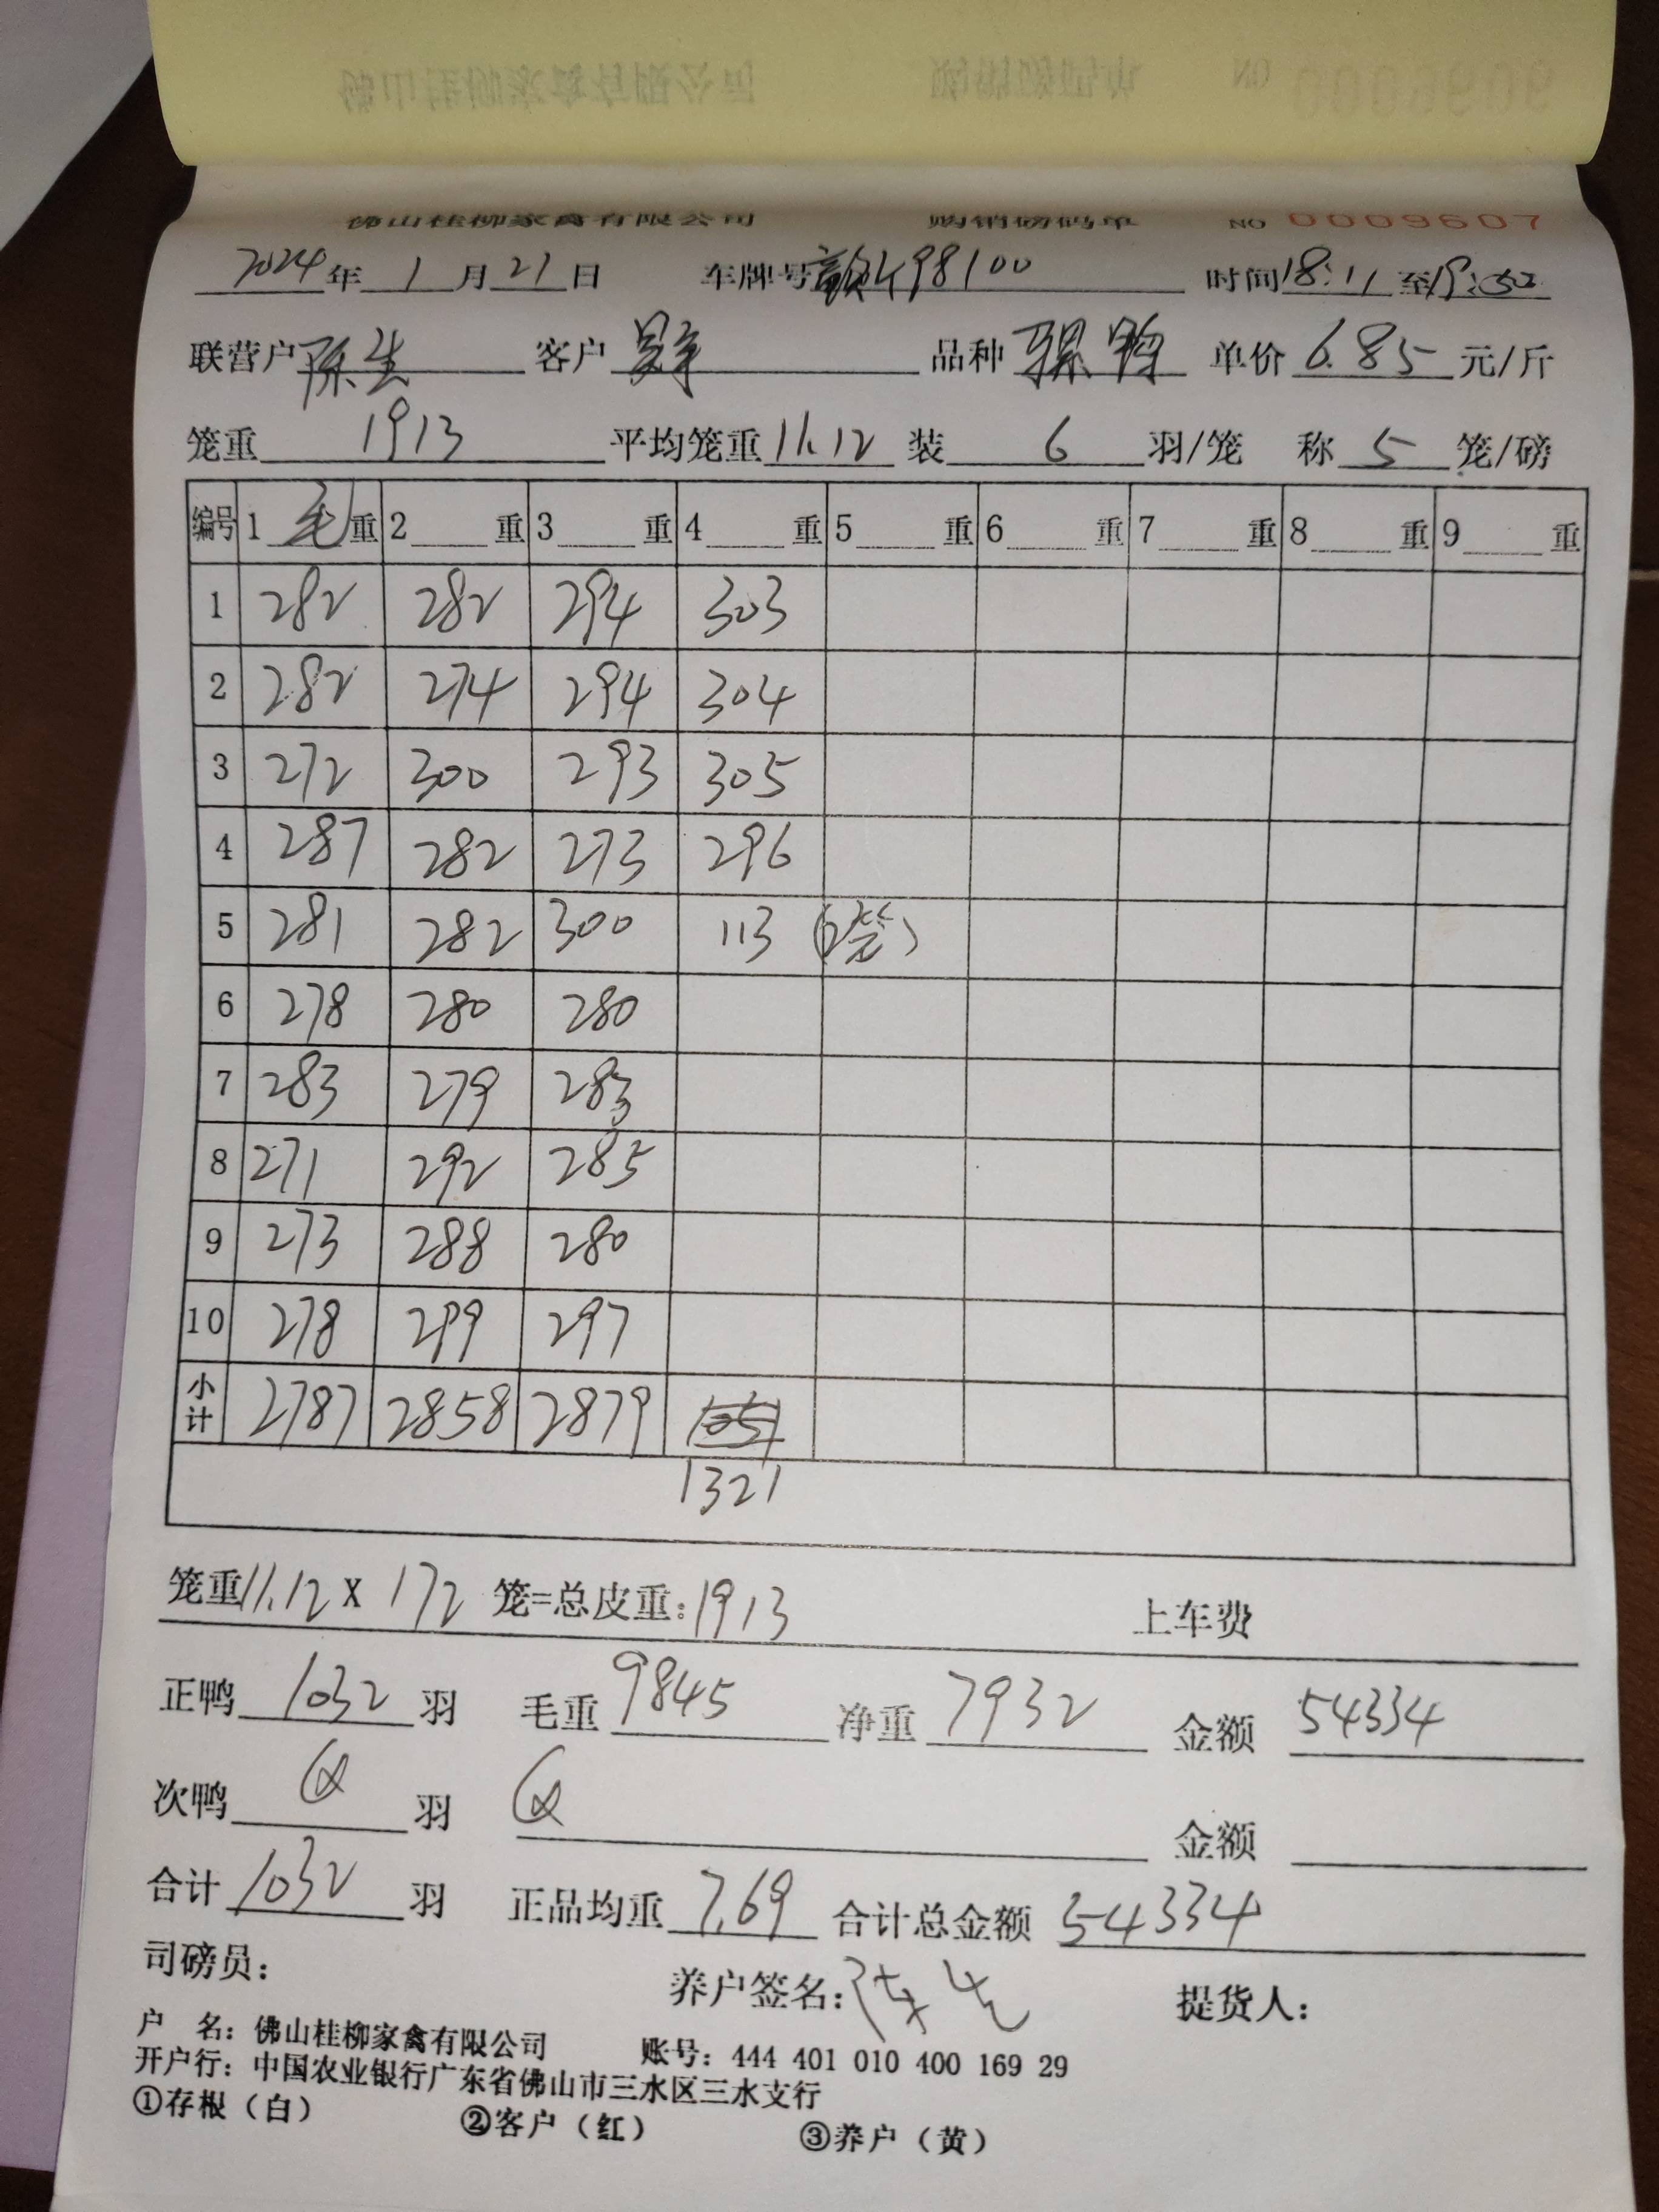 佛山桂柳家禽有限公司 购销磅码单 NO 0009607
2024年1月21日 车牌号 98100 时间18:11至19:02
联营户 陈生 客户 品种 骡鸭 单价 6.85 元/斤
笼重 1913 平均笼重 11.12 装 6 羽/笼 称 5 笼/磅
编号 1 毛 重 2 重 3 重 4 重 5 重 6 重 7 重 8 重 9 重
1 282 282 294 303
2 282 274 294 304
3 272 300 293 305
4 287 282 273 296
5 281 282 300 113 (2笼)
6 278 280 280
7 283 279 283
8 271 292 285
9 273 288 280
10 278 299 297
小计 2787 2858 2879
1321
笼重11.12 X 172 笼=总皮重:1913 上车费
正鸭 1032 羽 毛重 9845 净重 7932 金额 54334
次鸭 羽 金额
合计 1032 羽 正品均重 7.69 合计总金额 54334
司磅员: 养户签名: 陈生 提货人:
户 名: 佛山桂柳家禽有限公司 账号: 444 401 010 400 169 29
开户行: 中国农业银行广东省佛山市三水区三水支行
①存根（白） ②客户（红） ③养户（黄）